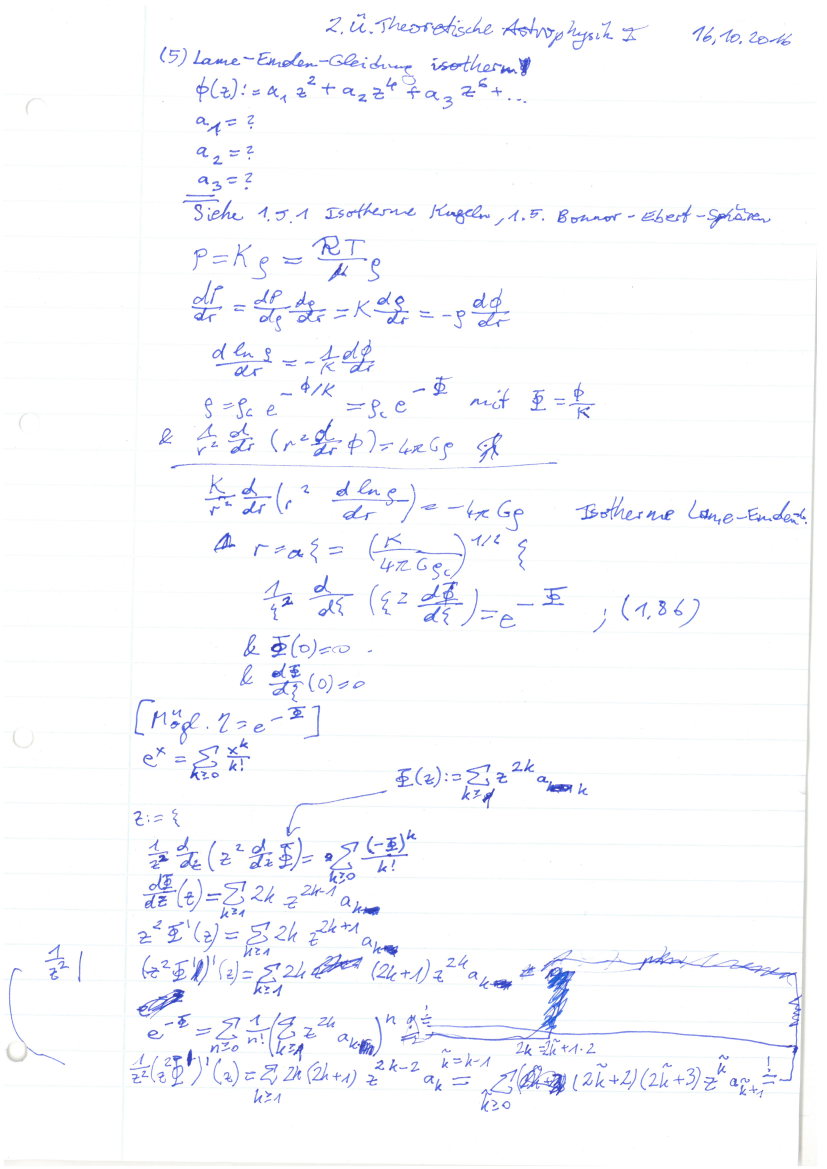 2. Ü. Theoretische Astrophysik I 16.10.2016
(5) Lame-Emden-Gleichung isotherm
ϕ(z) := a₁ z² + a₂ z⁴ + a₃ z⁶ + ...
a₁ = ?
a₂ = ?
a₃ = ?
Siehe 1.5.1 Isotherme Kugeln, 1.5. Bonnor-Ebert-Sphären
P = Kρ = RT/μ ρ
dP/dr = dP/dρ dρ/dr = K dρ/dr = -ρ dϕ/dr
d ln ρ/dr = -1/K dϕ/dr
ρ = ρc e^(-ϕ/K) = ρc e^(-Φ) mit Φ = ϕ/K
& 1/r² d/dr (r² d/dr ϕ) = 4πGρ
K/r² d/dr (r² d ln ρ/dr) = -4πGρ Isotherme Lame-Emden
r = aξ = (K/(4πGρc))^(1/2) ξ
1/ξ² d/dξ (ξ² dΦ/dξ) = e^(-Φ) ; (1.86)
& Φ(0)=0
& dΦ/dξ (0)=0
[Mögl. η = e^(-Φ)]
e^x = Σ_(k≥0) x^k/k!
Φ(z) := Σ_(k≥1) z^(2k) a_k
z := ξ
1/z² d/dz (z² d/dz Φ) = Σ_(k≥0) (-Φ)^k/k!
dΦ/dz (z) = Σ_(k≥1) 2k z^(2k-1) a_k
z² Φ'(z) = Σ_(k≥1) 2k z^(2k+1) a_k
1/z² | (z²Φ')'(z) = Σ_(k≥1) 2k (2k+1) z^(2k) a_k
e^(-Φ) = Σ_(n≥0) 1/n! (Σ_(k≥1) z^(2k) a_k)^n
2k = 2k̃+1·2
1/z² (z²Φ')'(z) = Σ_(k≥1) 2k (2k+1) z^(2k-2) a_k =^(k̃=k-1) Σ_(k̃≥0) (2k̃+2)(2k̃+3) z^k̃ a_(k̃+1) =!